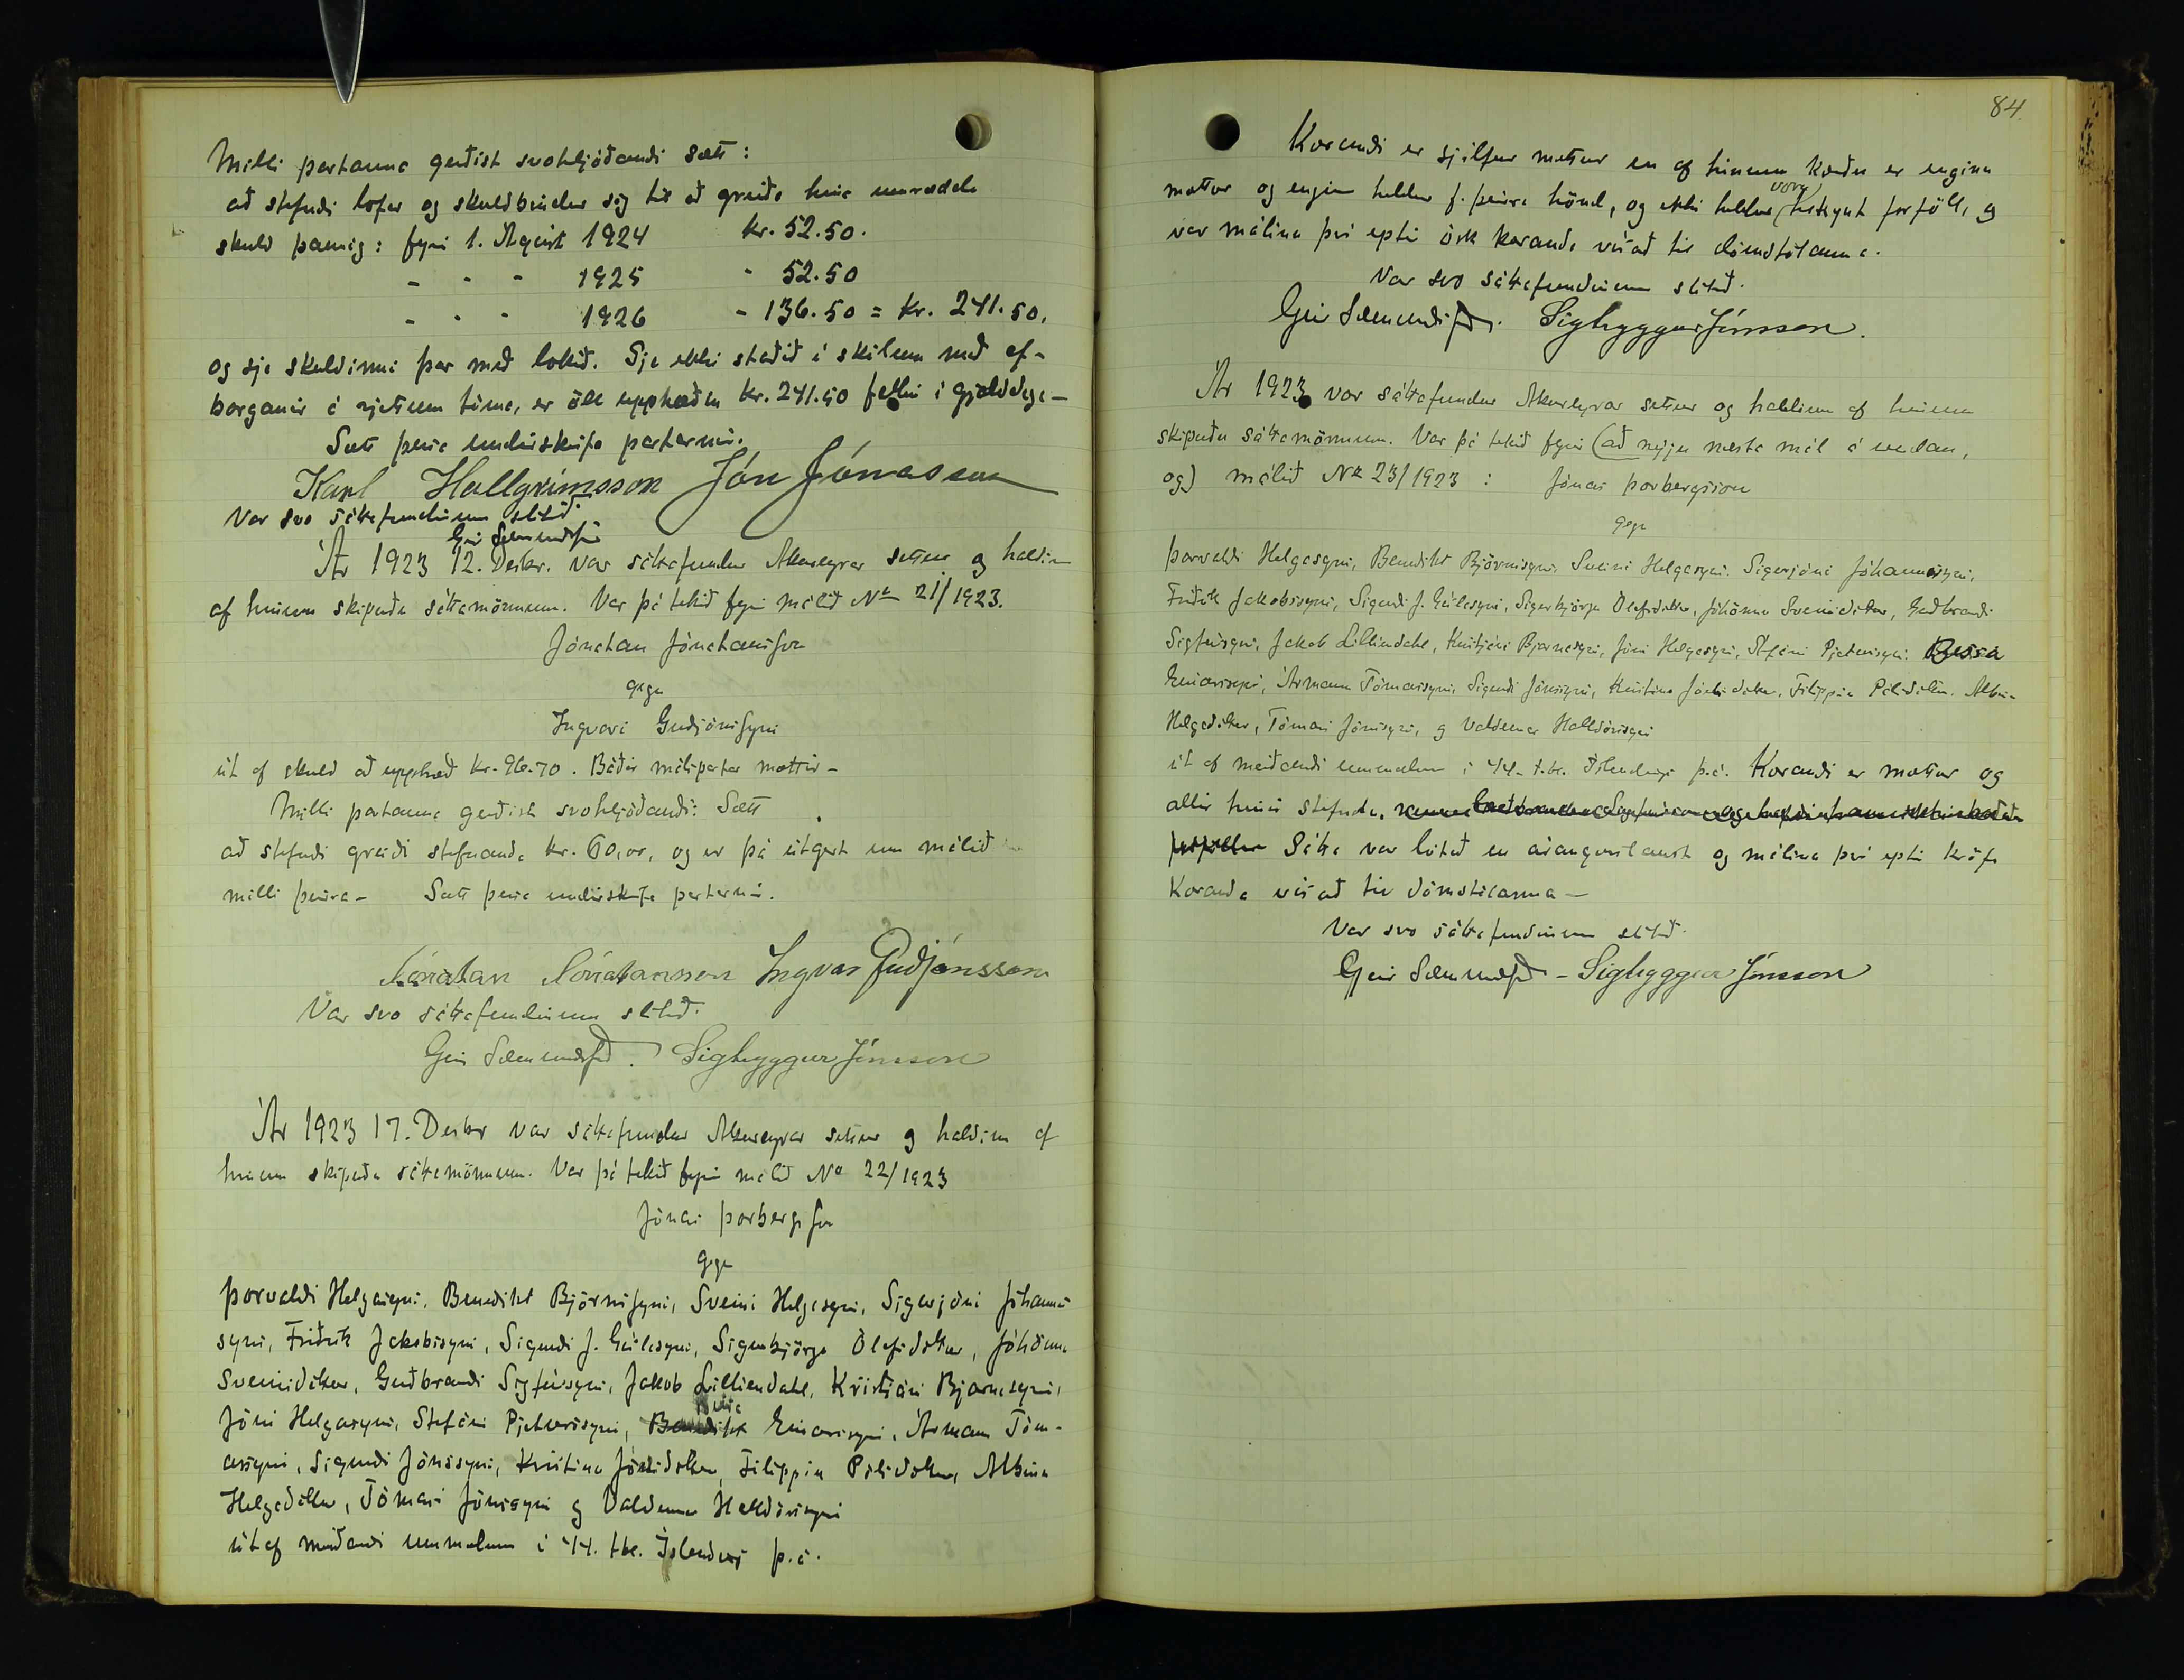 Milli partanna gerðist svohljóðandi sætt:
að stefndi lofar og skuldbindur sig til að greiða hina umræddu
skuld þannig: fyrir 1. Ágúst 1924 kr. 52.50.
- - - 1925 - 52.50
- - - 1926 - 136.50 = kr. 241.50.
og sje skuldinni þar með lokið. Sje ekki staðið í skilum með af-
borganir á rjettum tíma, er öll upphæðin kr. 241.50 fallin í gjalddaga-
Sætt þessa undirskrifa partarnir.
Karl Hallgrímsson Jón Jónasson
Var svo sáttafundinum slitið.
Geir Sæmundsson
Ár 1923 12. Desbr. var sáttafundur Akureyrar settur og haldinn
af hinum skipuðu sáttamönnum. Var þá tekið fyrir málið Nr 21/1923.
Jónatan Jónatansson
gegn
Ingvari Guðjónssyni
út af skuld að upphæð kr. 96.70. Báðir málspartar mættir-
Milli partanna gerðist svohljóðandi: Sætt
að stefndi greiði stefnanda kr. 60,00, og er þá útgert um málið
milli þeirra- Sætt þessa undirskrifa partarnir.
Jónatan Jónatansson Ingvar Guðjónsson
Var svo sáttafundinum slitið.
Geir Sæmundsson. Sigtryggur Jónsson
Ár 1923 17. Desbr var sáttafundur Akureyrar settur og haldinn af
hinum skipuðu sáttamönnum. Var þá tekið fyrir málið No 22/1923
Jónas Þorbergsson
gegn
Þorvaldi Helgasyni, Benedikt Björnssyni, Sveini Helgasyni, Sigurjóni Jóhannes
syni, Friðrik Jakobssyni, Sigurði J. Gíslasyni, Sigurbjörgu Ólafsdóttur, Jóhönnu
Sveinsdóttur, Guðbrandi Sigfússyni, Jakob Lilliendahl, Kristjáni Bjarnasyni,
Jóni Helgasyni, Stefáni Pjeturssyni, Benedikt Einarssyni, Ármann Tóm-
assyni, Sigurði Jónssyni, Kristínu Jónsdóttur, Filippíu Pálsdóttur, Albínu
Helgadóttur, Tómasi Jónssyni og Valdemar Halldórssyni
út af meiðandi ummælum í 44. tbl. Íslendings þ.á.
84.
Kærandi er sjálfur mættur en af hinum kærðu er enginn
mættur og enginn heldur f. þeirra hönd, og ekki heldur voru tilkynt forföll, og
var málinu því eptir ósk kæranda vísað til dómstólanna.
Var svo sáttafundinum slitið.
Geir Sæmundsson. Sigtryggur Jónsson.
Ár 1923 var sáttafundur Akureyrar settur og haldinn af hinum
skipuðu sáttamönnum. Var þá tekið fyrir (að nýju næsta mál á undan,
og) málið Nr 23/1923 : Jónas Þorbergsson
gegn
Þorvaldi Helgasyni, Benedikt Björnssyni, Sveini Helgasyni, Sigurjóni Jóhannessyni,
Friðrik Jakobssyni, Sigurði J. Gíslasyni, Sigurbjörgu Ólafsdóttur, Jóhönnu Sveinsdóttur, Guðbrandi
Sigfússyni, Jakob Lilliendahl, Kristjáni Bjarnasyni, Jóni Helgasyni, Stefáni Pjeturssyni, Bessa
Einarssyni, Ármann Tómassyni, Sigurði Jónssyni, Kristínu Jónsdóttur, Filippíu Pálsdóttur, Albínu
Helgadóttur, Tómasi Jónssyni, og Valdemar Halldórssyni
út af meiðandi ummælum í 44. tbl. Íslendings þ.á. Kærandi er mættur og
allir hinir stefndu,
Sátta var leitað en árangurslaust og málinu því eptir kröfu
Kæranda vísað til dómstólanna-
Var svo sáttafundinum slitið.
Geir Sæmundsson - Sigtryggur Jónsson